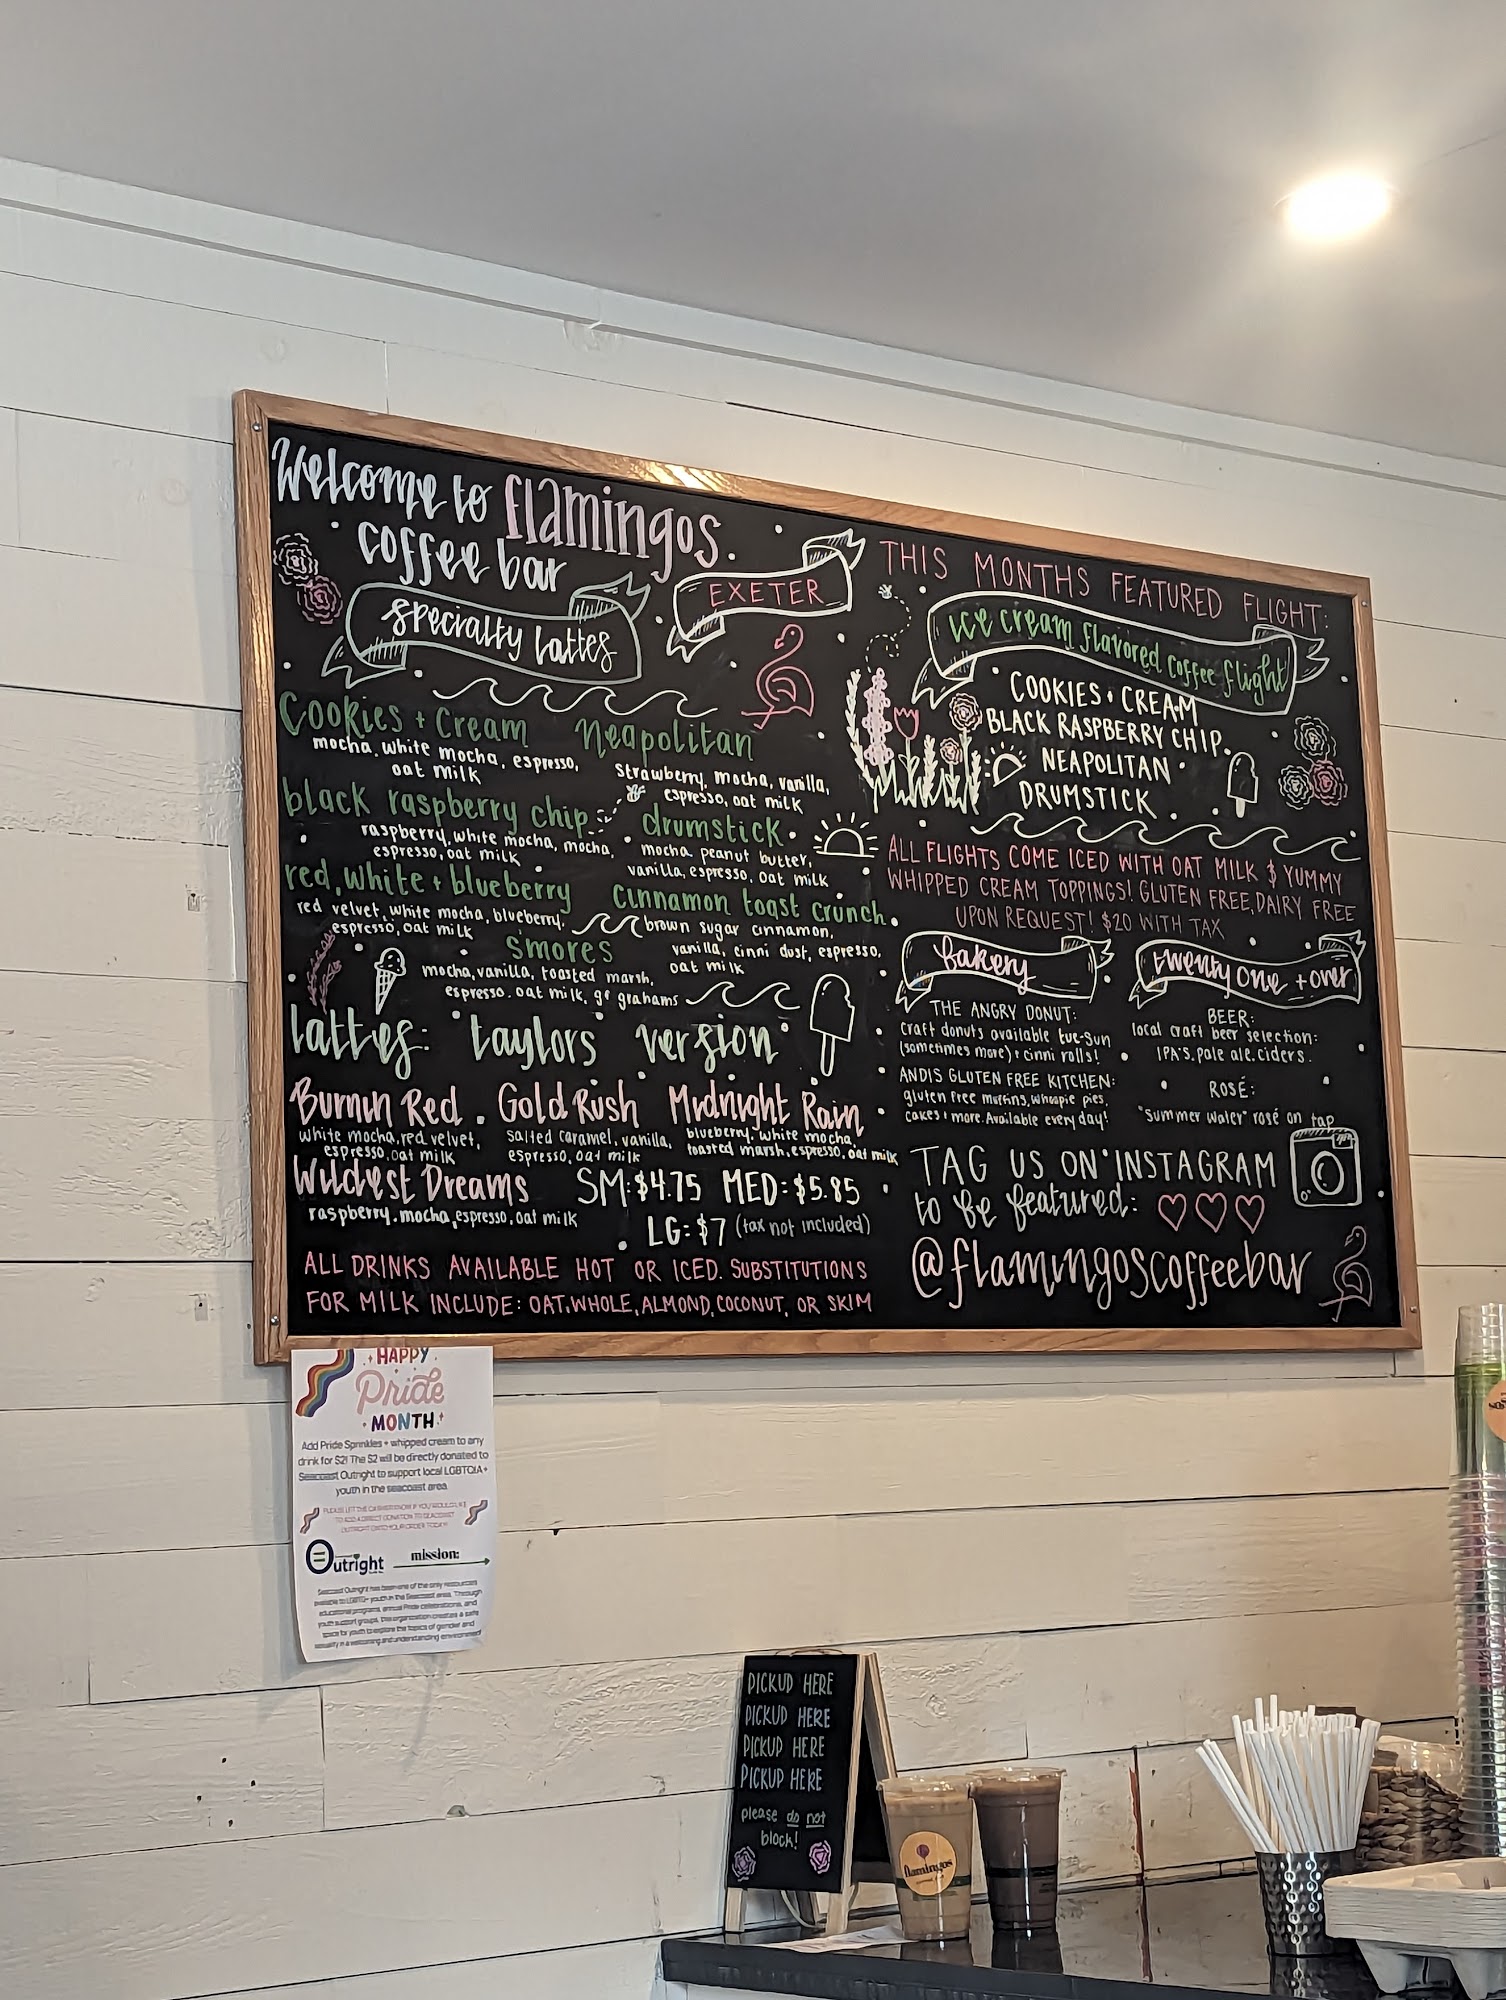 Welcome to flamingos
coffee bar
EXETER
specialty lattes
Cookies + Cream
mocha, white mocha, espresso,
oat milk
Neapolitan
Strawberry, mocha, vanilla,
espresso, oat milk
black raspberry chip
raspberry, white mocha, mocha,
espresso, oat milk
drumstick
mocha, peanut butter,
vanilla, espresso, oat milk
red, white + blueberry
red velvet, white mocha, blueberry,
espresso, oat milk
cinnamon toast crunch
brown sugar cinnamon,
vanilla, cinni dust, espresso,
oat milk
s'mores
mocha, vanilla, toasted marsh,
espresso, oat milk, gr grahams
lattes: taylors version
Burnin Red
white mocha, red velvet,
espresso, oat milk
Gold Rush
salted caramel, vanilla,
espresso, oat milk
Midnight Rain
blueberry, white mocha,
toasted marsh, espresso, oat milk
Wildest Dreams
raspberry, mocha, espresso, oat milk
SM: $4.75 MED: $5.85
LG: $7 (tax not included)
ALL DRINKS AVAILABLE HOT OR ICED. SUBSTITUTIONS
FOR MILK INCLUDE: OAT, WHOLE, ALMOND, COCONUT, OR SKIM
THIS MONTHS FEATURED FLIGHT:
ice cream flavored coffee flight
COOKIES + CREAM
BLACK RASPBERRY CHIP
NEAPOLITAN
DRUMSTICK
ALL FLIGHTS COME ICED WITH OAT MILK & YUMMY
WHIPPED CREAM TOPPINGS! GLUTEN FREE, DAIRY FREE
UPON REQUEST! $20 WITH TAX
bakery
THE ANGRY DONUT:
craft donuts available tue-sun
(sometimes more) + cinni rolls!
ANDIS GLUTEN FREE KITCHEN:
gluten free muffins, whoopie pies,
cakes + more. Available every day!
twenty one + over
BEER:
local craft beer selection:
IPA'S, pale ale, ciders.
ROSÉ:
"Summer Water" rosé on tap
TAG US ON INSTAGRAM
to be featured:
@flamingoscoffeebar
HAPPY
Pride
MONTH
Add Pride Sprinkles + whipped cream to any
drink for $2! The $2 will be directly donated to
Seacoast Outright to support local LGBTQIA+
youth in the seacoast area.
PLEASE LET THE CASHIER KNOW IF YOU WOULD LIKE
TO ADD A DIRECT DONATION TO SEACOAST
OUTRIGHT ONTO YOUR ORDER TODAY!
Outright
mission:
Seacoast Outright has been one of the only resources
available to LGBTQ+ youth in the Seacoast area. Through
educational programs, annual Pride celebrations, and
youth support groups, this organization creates a safe
space for youth to explore the topics of gender and
sexuality in a welcoming and understanding environment
PICKUP HERE
PICKUP HERE
PICKUP HERE
PICKUP HERE
please do not
block!
flamingos